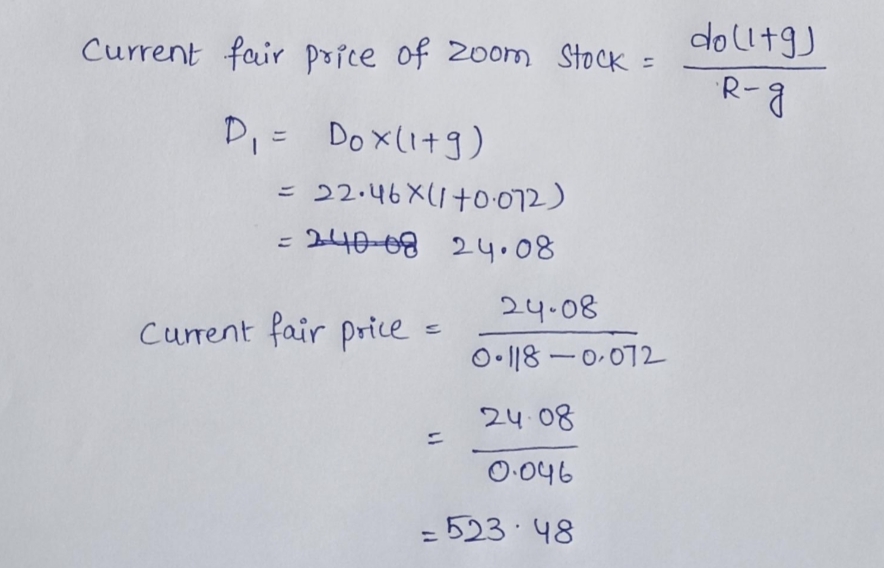 Current fair price of Zoom Stock = do(1+g) / R-g
D₁ = D₀×(1+g)
= 22.46×(1+0.072)
= ~~240.08~~ 24.08
Current fair price = 24.08 / 0.118 - 0.072
= 24.08 / 0.046
= 523.48